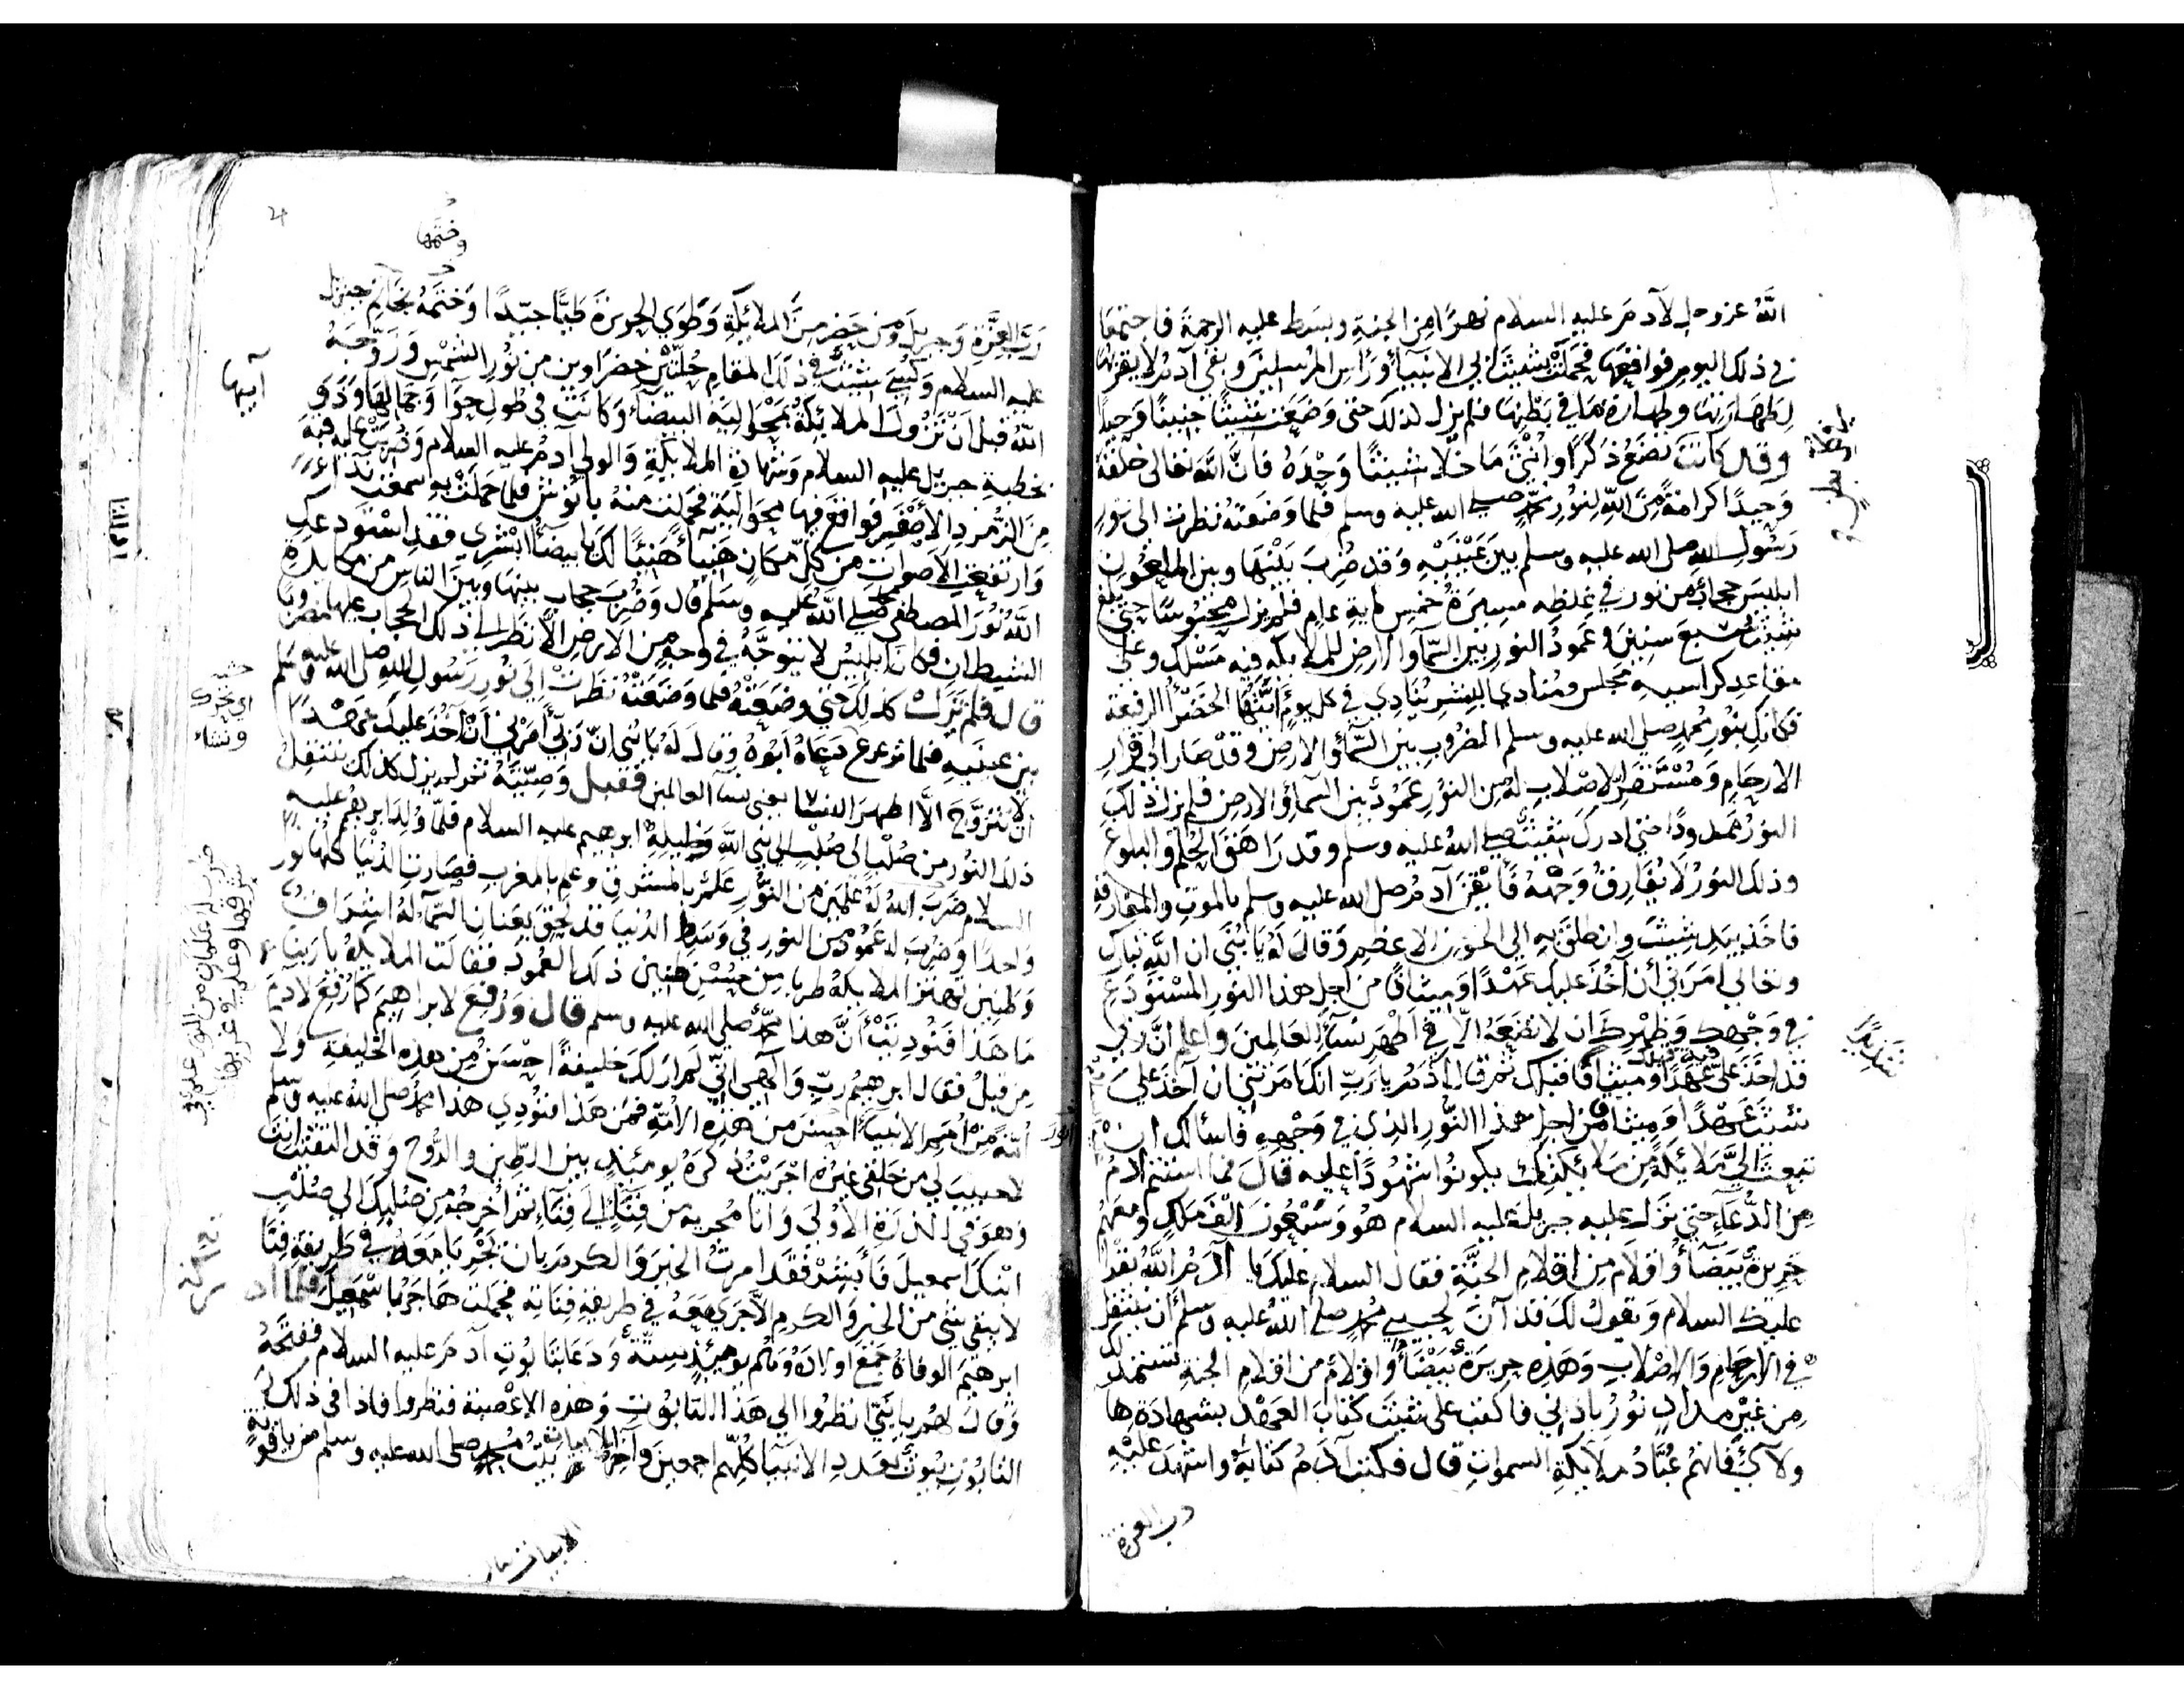 الله عز وجل لآدم عليه السلام نهرا من الجنة وبسط عليه الرحمة فاجتمعا
في ذلك اليوم فواقعها فحملت بشيث ابي الانبياء وراس المرسلين وبقي آدم لا يقربها
لطهارتها وطهارة ما في بطنها فلم يزل لذلك حتى وضعت شيثا جنينا وحيدا
وقال كانت تضع ذكرا وانثى ما خلا شيثا وحده فان الله تعالى خلقه
وحيدا كرامة من الله لنور محمد صلى الله عليه وسلم فلما وضعته نظرت الى نور
رسول الله صلى الله عليه وسلم بين عينيه وقد ضرب بينها وبين الملعون
ابليس حجاب من نور في غلظه مسيرة خمس ماية عام فلم يزل محبوسا حتى بلغ
شيث سبع سنين وعمود النور بين السماء والارض للملايكة فيه مسلك وعلى
مقاعد كراسيه مجلس ومنادي البشر ينادي في كل يوم ايتها الخضراء الرفيعة
بنور محمد صلى الله عليه وسلم المضروب بين السماء والارض وقد صار الى قرار
الارحام ومستقر الاصلاب له من النور عمود بين السماء والارض فلم يزل ذلك
النور ممدودا حتى ادرك شيث صلى الله عليه وسلم وقد راهق الحلم والبلوغ
وذلك النور لا يفارق وجهه فايقن آدم صلى الله عليه وسلم بالموت والمفارقة
فاخذ بيد شيث وانطلق به الى الحوز الاعظم وقال له يا بني ان الله تبارك
وتعالى امرني أن آخذ عليك عهدا وميثاقا من اجل هذا النور المستودع
في وجهك وظهرك ان لا تضعه الا في اطهر نساء العالمين واعلم ان ربي
قد اخذ علي فيه قبلك عهدا وميثاقا ثم قال آدم يا رب انك امرتني ان آخذ على
شيث عهدا وميثاقا من اجل هذا النور الذي في وجهه فاسألك ان
تبعث الي ملائكة من ملائكتك يكونوا شهودا عليه قال فما استتم آدم
من الدعاء حتى نزل عليه جبريل عليه السلام هو وسبعون الف ملك ومعهم
حريرة بيضاء واقلام من اقلام الجنة فقال السلام عليك يا آدم الله يقرأ
عليك السلام ويقول لك قد آن لحبيبي محمد صلى الله عليه وسلم أن ينتقل
في الارحام والاصلاب وهذه حريرة بيضاء واقلام من اقلام الجنة تستمد لك
من غير مداد نور باذني فاكتب على شيث كتاب العهد بشهادة ها
ولآئ فانهم عباد ملايكة السموات قال فكتب آدم كتابه واشهد عليه
رب العزة
وختمها
رب العزة وجبريل ومن حضر من الملايكة وطوى الحريرة طيا جيدا وختمه بخاتم جبريل
عليه السلام وكسي شيث في ذلك المقام حلتين خضراوين من نور الشمس وزوجه
الله قبل ان تزول الملائكة بمحوالية البيضاء وكانت في طول حوا وجمالها
بخطبة جبريل عليه السلام وشهادة الملايكة والولي آدم عليه السلام وضرب عليه قبة
من الزمرد الاصفر فواقع فيها محوالية فحملت منه بأنوش فلما حملت به سمعت نداء
وارتفعت الاصوات من كل مكان هنيئا هنيئا لك يا بيضاء ابشري فقد استودعك
الله نور المصطفى صلى الله عليه وسلم قال وضرب حجاب بينها وبين الناس من مكايدة
الشيطان فكان ابليس لا يتوجه في وجه من الارض الا نظر الى ذلك الحجاب عليها مضروبا
قال فلم تزل كذلك حتى وضعته فلما وضعته نظرت الى نور رسول الله صلى الله عليه وسلم
بين عينيه فلما ترعرع دعاه ابوه وقال له يا بني ان ربي أمرني ان آخذ عليك عهدا
ان لا تتزوج الا اطهر النسا يعني نسا العالمين فقبل وصيته ثم لم يزل كذلك ينتقل
ذلك النور من صلب الى صلب الى نبي الله وخليله ابرهيم عليه السلام فلما ولد ابرهيم عليه
السلام ضرب الله له علمين من النور علم بالمشرق وعلم بالمغرب فصارت الدنيا كلها نور
واحدا وضرب له عمود من النور في وسط الدنيا قد لحق بعنان السماء له اشراف
وطنين تهتز الملايكة طربا من حسن طنين ذلك العمود فقالت الملايكة يا ربنا
ما هذا فنوديت أن هذا محمد صلى الله عليه وسلم قال ورفع لابراهيم كما رفع لادم
من قبل فقال ابرهيم رب وآلهي اني لم ار لك خليفة احسن من هذه الخليقة ولا
امة من امم الانبياء احسن من هذه الامة فمن هذا فنودي هذا محمد صلى الله عليه وسلم
لا حبيب لي من خلقي غيره اجريت ذكره يومئذ بين الطين والروح وقد التقيت انت
وهو في الذروة الاولى وانا مجريه من قناة الى قناة ثم اخرجه من صلبك الى صلب
ابنك اسمعيل فأبشر فقد امرت الخير والكرم يان تجريا معه في طريقة قنا
لا يبقى شي من الخير والكرم الا جرى معه في طريقة قناته فحملت هاجر باسمعيل فلما اد
ابرهيم الوفاة جمع اولاده وهم يومئذ ستة ودعا بتابوت آدم عليه السلام ففتحه
وقال لهم يا بني انظروا الى هذا التابوت وهذه الاعصبة فنظروا فاذا في ذلك
التابوت بيوت بعدد الانبياء كلهم اجمعين وآخر الابيات بيت محمد صلى الله عليه وسلم من ياقوتة
ضرب له علمان من النور علم في
شرقها وعلم في غربها